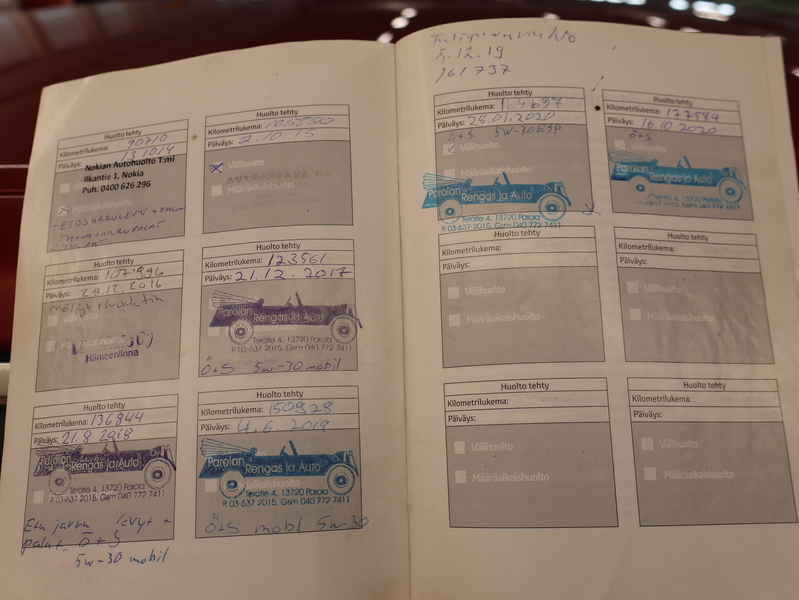 Huolto tehty
Kilometrilukema: 90710
Päiväys: 13.10.14
Nokian Autohuolto T:mi
Ilkantie 1, Nokia
Puh. 0400 626 296
Huolto tehty
Kilometrilukema:
Päiväys: 2.10.15
Välihuolto
Määräaikaishuolto
Huolto tehty
Kilometrilukema: 107996
Päiväys: 29.12.2016
Hämeenlinna
Huolto tehty
Kilometrilukema: 123561
Päiväys: 21.12.2017
Parolan
Rengas ja Auto
Teratie 4, 13720 Parola
P. 03-637 2015, Gsm 040 772 7411
Ö+S 5w-30 mobil
Huolto tehty
Kilometrilukema: 136844
Päiväys: 21.8.2018
Parolan
Rengas ja Auto
Teratie 4, 13720 Parola
P. 03-637 2015, Gsm 040 772 7411
Etu jarru levyt +
palat. Ö+S
5w-30 mobil
Huolto tehty
Kilometrilukema: 150928
Päiväys: 4.6.2019
Parolan
Rengas ja Auto
Teratie 4, 13720 Parola
P. 03-637 2015, Gsm 040 772 7411
Ö+S mobil 5w-30
5.12.19
161737
Huolto tehty
Kilometrilukema: 164697
Päiväys: 28.01.2020
Ö+S 5W-30 ESP
Parolan
Rengas ja Auto
Teratie 4, 13720 Parola
P. 03-637 2015, Gsm 040 772 7411
Huolto tehty
Kilometrilukema: 177584
Päiväys: 16.10.2020
Ö+S
Parolan
Rengas ja Auto
Huolto tehty
Kilometrilukema:
Päiväys:
Välihuolto
Määräaikaishuolto
Huolto tehty
Kilometrilukema:
Päiväys:
Välihuolto
Määräaikaishuolto
Huolto tehty
Kilometrilukema:
Päiväys:
Välihuolto
Määräaikaishuolto
Huolto tehty
Kilometrilukema:
Päiväys:
Välihuolto
Määräaikaishuolto